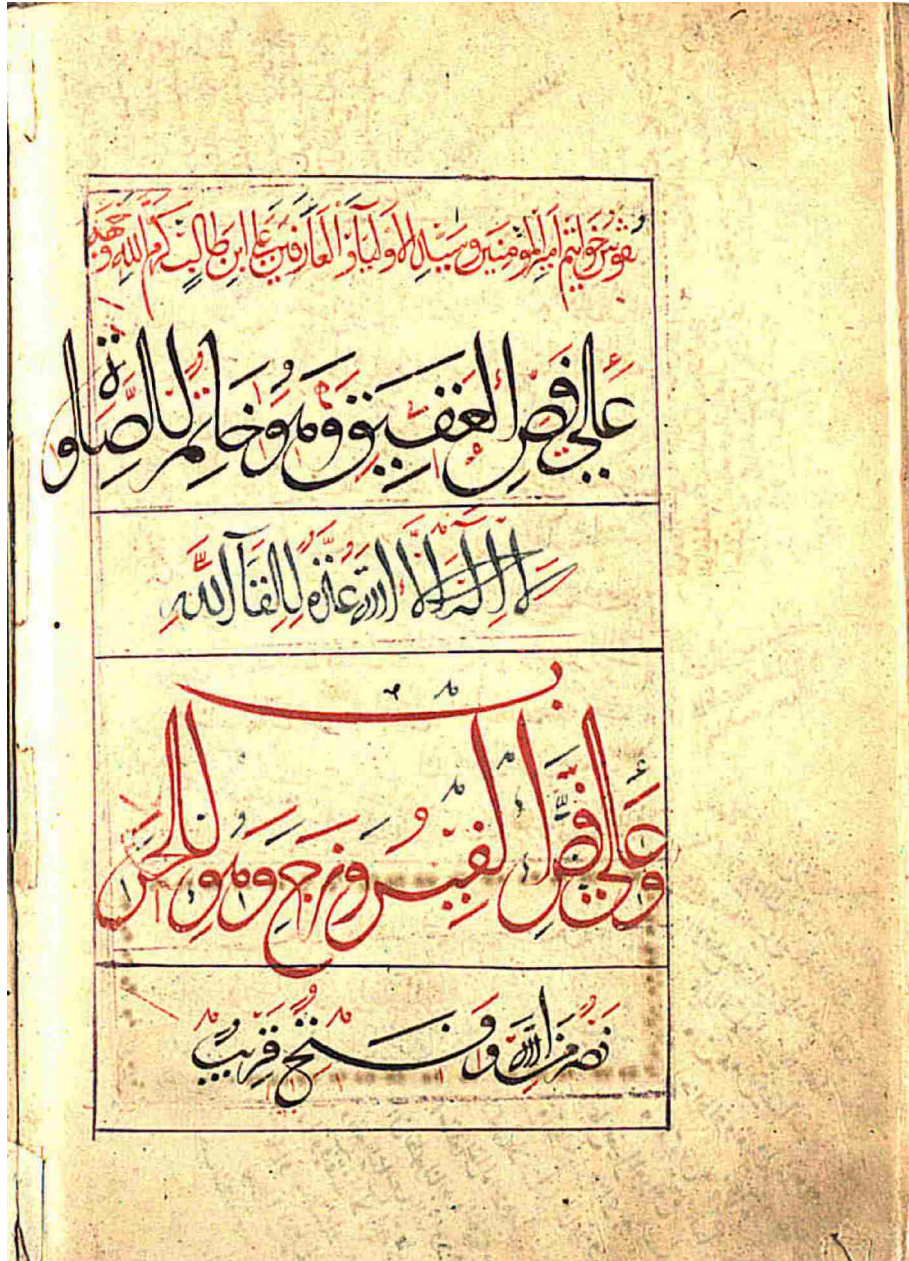 نقوش خواتيم أمير المؤمنين وسيد الاوليآء والعارفين علي ابن طالب كرم الله وجهه
عَلي فَصِّ العَقِيقِ وَهُوَ خَاتِمٌ لِلصَّلوة
لا اله الا الله عدة للقآ الله
وَعَلي فَصِّ الفيروزجِ وَهُوَ لِلحَرب
نصر من الله وفتح قريب